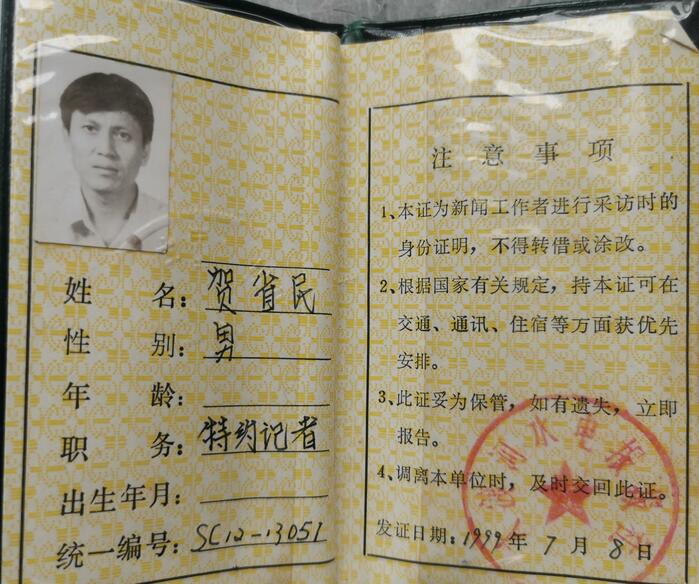 姓 名：贺省民
性 别：男
年 龄：
职 务：特约记者
出生年月：
统一编号：SC12-13051
注意事项
1、本证为新闻工作者进行采访时的
身份证明，不得转借或涂改。
2、根据国家有关规定，持本证可在
交通、通讯、住宿等方面获优先
安排。
3、此证妥为保管，如有遗失，立即
报告。
4、调离本单位时，及时交回此证。
发证日期：1999年7月8日
水电报